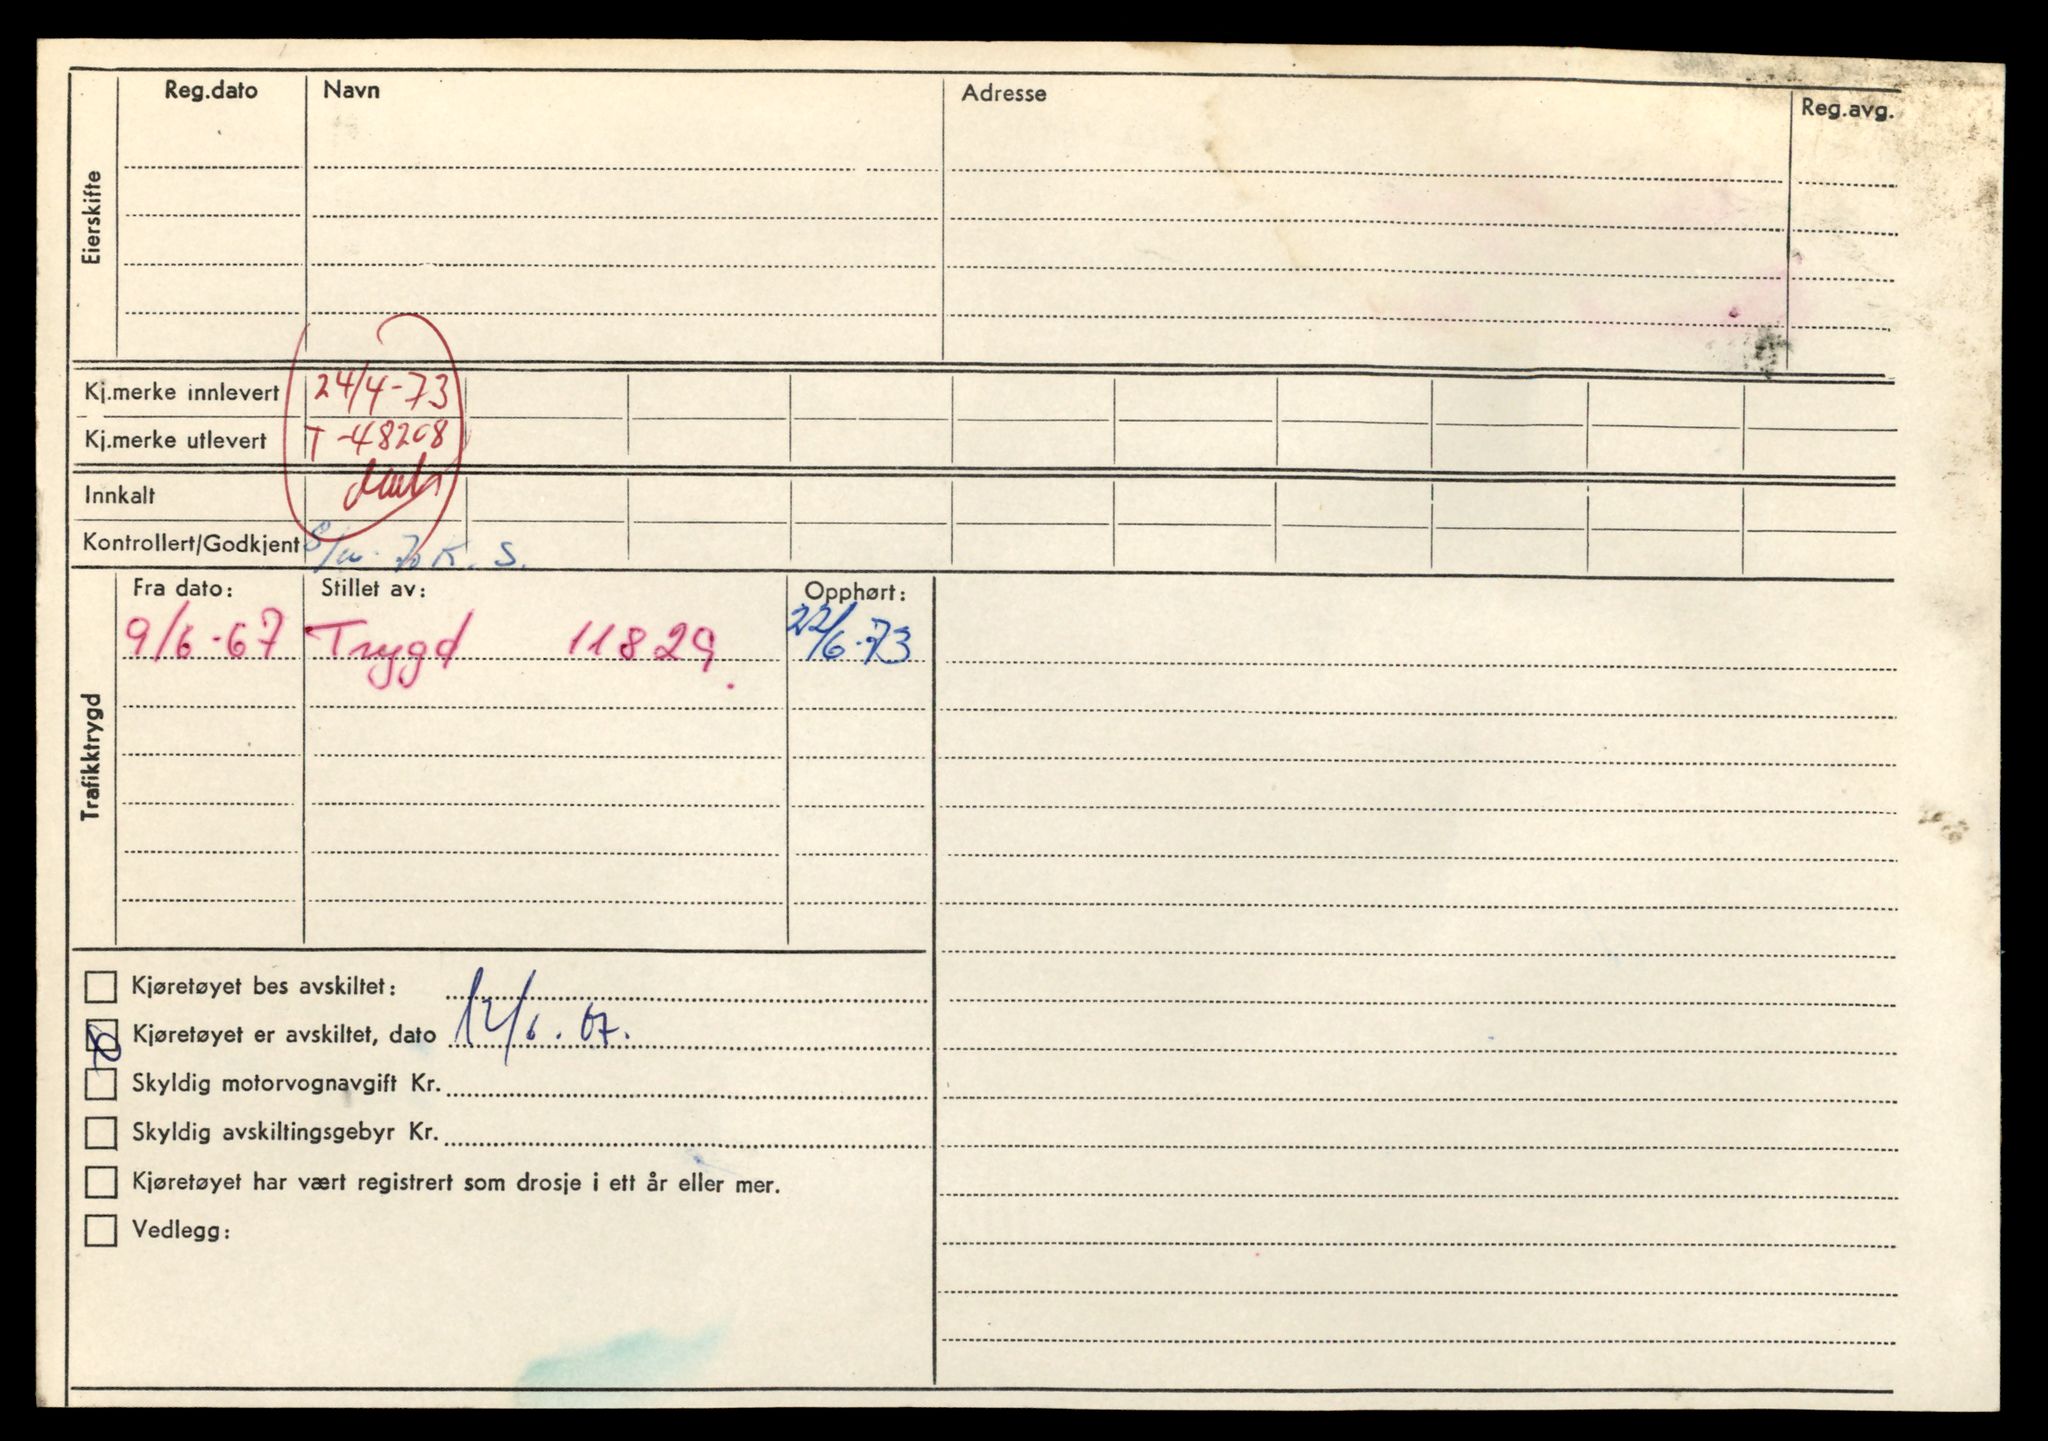 Eierskifte
Reg.dato Navn Adresse Reg.avg.
Kj.merke innlevert 24/4-73
Kj.merke utlevert T-48208
Innkalt
Kontrollert/Godkjent K. S.
Trafikktrygd
Fra dato: Stillet av: Opphørt:
9/6-67 Trygd 11829. 22/6-73
Kjøretøyet bes avskiltet:
Kjøretøyet er avskiltet, dato 12/6.67.
Skyldig motorvognavgift Kr.
Skyldig avskiltingsgebyr Kr.
Kjøretøyet har vært registrert som drosje i ett år eller mer.
Vedlegg: